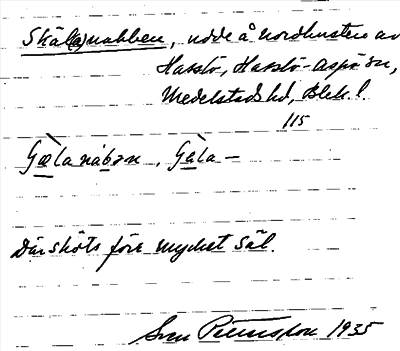 Skäl(a)nabben, udde å nordkusten av
Hasslö, Hasslö-Aspö sn,
Medelstads hd, Blek. l.
115
Gœ̀lanábən, Gœ̀la –
Där sköts förr mycket säl.
Sven Pettersson 1935